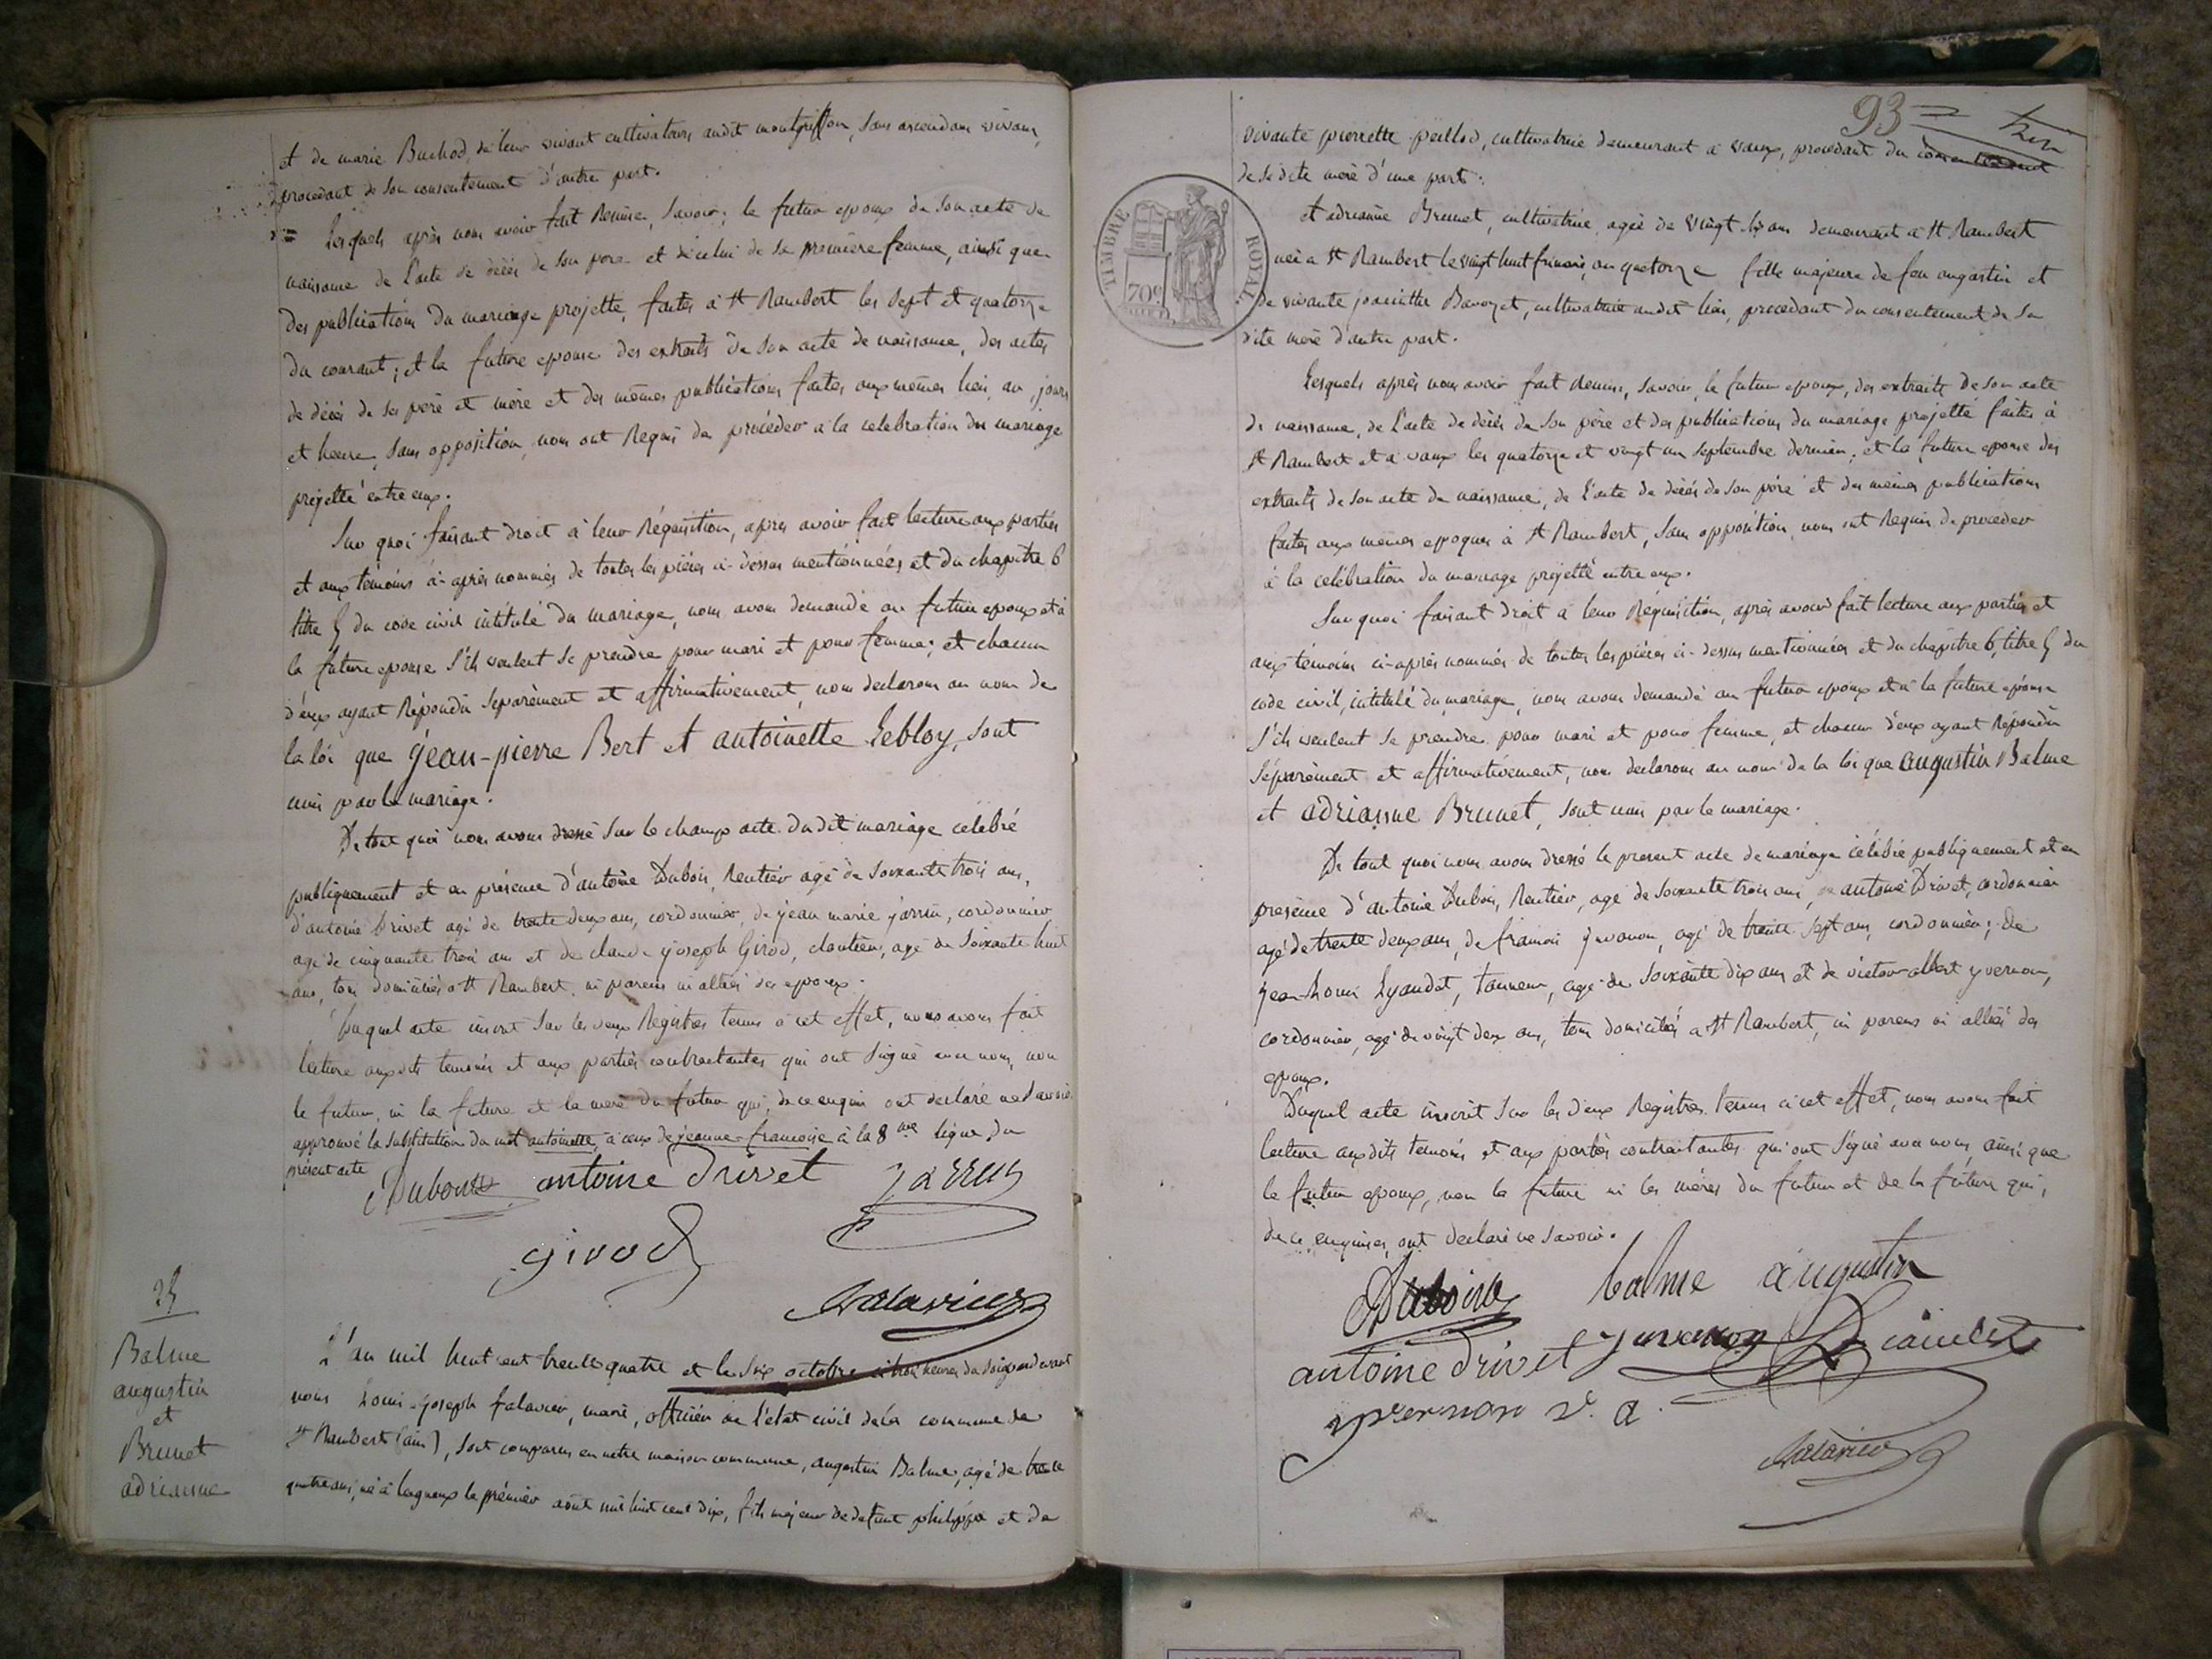 et de marie Buchod, de leur vivant cultivateurs audit montgriffon, sans ascendans vivans,
procedant de son consentement d'autre part.
Lesquels après nous avoir fait Remise, Savoir; le futur epoux de son acte de
naissance de l'acte de décès de son pere et de celui de sa première femme, ainsi que
des publications du mariage projetté, faites à St Rambert les sept et quatorze
du courant; et la future epouse des extraits de son acte de naissance, des actes
de décés de ses père et mère et des mêmes publications faites aux mêmes lieu, au jours
et heure, sans opposition, nous ont Requis de procéder à la celebration du mariage
projetté entre eux.
Sur quoi faisant droit à leur Réquisition, après avoir fait lecture aux parties
et aux témoins ci-après nommés de toutes les pièces ci-dessus mentionnées et du chapitre 6
titre 5 du code civil intitulé du mariage, nous avons demandé au futur epoux et à
la future epouse s'ils veulent se prendre pour mari et pour femme; et chacun
d'eux ayant Répondu séparément et affirmativement, nous declarons au nom de
la loi que jean-pierre Bert et antoinette Lebloy, sont
unis par le mariage.
De tout quoi nous avons dressé sur le champ acte dudit mariage célébré
publiquement et en présence d'antoine Dubois, Rentier agé de soixante trois ans,
d'antoine Drivet agé de trente deux ans, cordonnier, de jean marie jarrin, cordonnier
agé de cinquante trois ans et de claude joseph Girod, cloutier, agé de soixante huit
ans, tous domiciliés à St Rambert, ni parens ni alliés des epoux.
Duquel acte inscrit sur les deux Registres tenus à cet effet, nous avons fait
lecture auxdits temoins et aux parties contractantes qui ont signé avec nous, non
le futur, ni la future et la mere du futur qui, de ce enquis ont declaré ne savoir.
approuvé la substitution du mot antoinette, à ceux de jeanne-francoise à la 8me ligne du
présent acte
Dubois antoine drivet jarrin
girod
falavier
25
Balme
augustin
et
Brunet
adrianne
L'an mil huit cent trente quatre et le six octobre à trois heures du soir pardevant
nous Louis-joseph falavier, maire, officier de l'état civil de la commune de
St Rambert (ain), sont comparus en notre maison commune, augustin Balme, agé de
quatre ans, né à lagneux le premier août mil huit cent dix, fils majeur de defunt philippe et de
93
vivante pierrette peillod, cultivatrice demeurant à vaux, procedant du consentement
de sadite mère d'une part:
et adrianne Brunet, cultivatrice, agée de vingt six ans demeurant à St Rambert
née à St Rambert le vingt huit frimaire an quatorze fille majeure de feu augustin et
de vivante jacinthe Bavozet, cultivatrice audit lieu, procedant du consentement de sa
dite mère d'autre part.
Lesquels après nous avoir fait Remise, Savoir, le futur epoux, des extraits de son acte
de naissance, de l'acte de décès de son père et des publications du mariage projetté faites à
St Rambert et à vaux les quatorze et vingt un septembre dernier; et la future epouse des
extraits de son acte de naissance, de l'acte de décés de son père et des mêmes publications
faites aux mêmes epoques à St Rambert, sans opposition, nous ont Requis de proceder
à la celébration du mariage projetté entre eux.
Sur quoi faisant droit à leur Requisition, après avoir fait lecture aux parties et
aux témoins ci-après nommés de toutes les pièces ci-dessus mentionnées et du chapitre 6, titre 5 du
code civil, intitulé du mariage, nous avons demandé au futur epoux et à la future epouse
s'ils veulent se prendre pour mari et pour femme, et chacun d'eux ayant Répondu
séparément et affirmativement, nous declarons au nom de la loi que augustin Balme
et adrianne Brunet, sont unis par le mariage.
De tout quoi nous avons dressé le present acte de mariage célébré publiquement et en
presence d'antoine Dubois, Rentier, agé de soixante trois ans, antoine Drivet, cordonnier
agé de trente deux ans, de francois juvanon, agé de trente sept ans, cordonnier; de
jean-Louis Lyaudet, tanneur, agé de soixante dix ans et de victor-albert yvernon,
cordonnier, agé de vingt deux ans, tous domiciliés à St Rambert, ni parens ni alliés des
epoux.
Duquel acte inscrit sur les deux Registres tenus à cet effet, nous avons fait
lecture auxdits temoins et aux parties contractantes qui ont signé avec nous, ainsi que
le futur epoux, non la future ni les mères du futur et de la future qui,
de ce enquises, ont declaré ne savoir.
Dubois balme augustin
antoine drivet juvanon
yvernon v. a.
falavier
TIMBRE ROYAL
70c